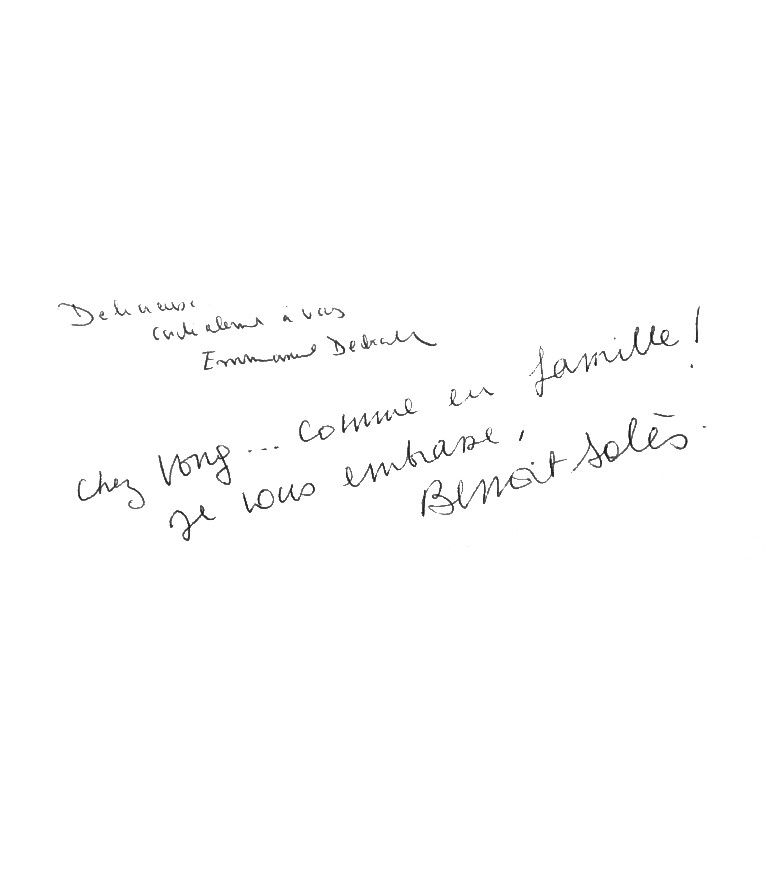 Délicieux
cordialement à vous
Emmanuel
Chez Vong... comme en famille!
Je vous embrasse,
Benoit Solès.